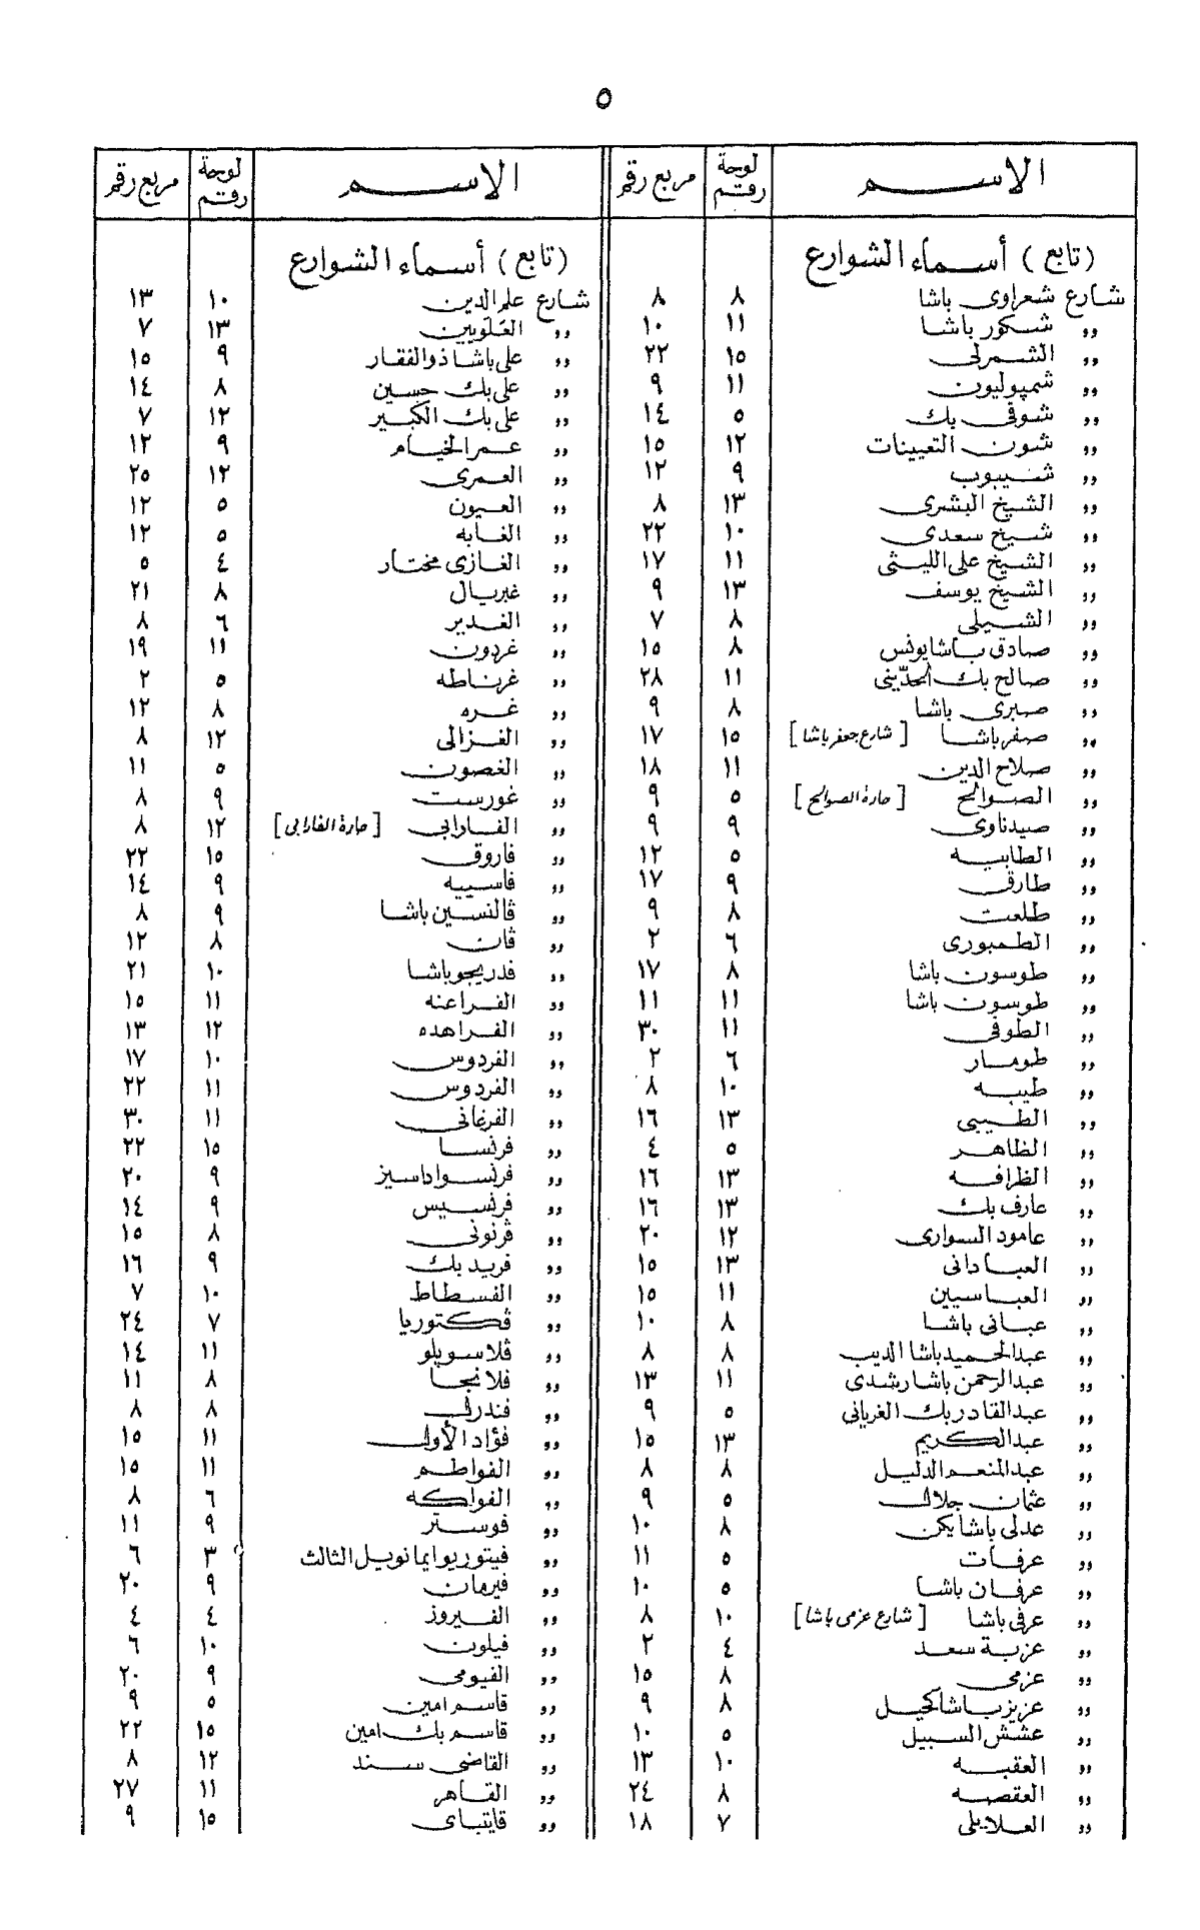 ٥
الاسم لوحة رقم مربع رقم
(تابع) أسماء الشوارع
شارع شعراوى باشا ٨ ٨
„ شكور باشا ١١ ١٠
„ الشمرلى ١٥ ٢٢
„ شمپوليون ١١ ٩
„ شوقى بك ٥ ١٤
„ شون التعيينات ١٢ ١٥
„ شيبوب ٩ ١٢
„ الشيخ البشرى ١٣ ٨
„ شيخ سعدى ١٠ ٢٢
„ الشيخ على الليثى ١١ ١٧
„ الشيخ يوسف ١٣ ٩
„ الشيلى ٨ ٧
„ صادق باشا يونس ٨ ١٥
„ صالح بك الحدّينى ١١ ٢٨
„ صبرى باشا ٨ ٩
„ صفر باشا [شارع جعفر باشا] ١٥ ١٧
„ صلاح الدين ١١ ١٨
„ الصوالح [حارة الصوالح] ٥ ٩
„ صيدناوى ٩ ٩
„ الطابيه ٥ ١٢
„ طارق ٩ ١٧
„ طلعت ٨ ٩
„ الطمبورى ٦ ٢
„ طوسون باشا ٨ ١٧
„ طوسون باشا ١١ ١١
„ الطوفى ١١ ٣٠
„ طومار ٦ ٢
„ طيبه ١٠ ٨
„ الطيبى ١٣ ١٦
„ الظاهر ٥ ٤
„ الظرافه ١٣ ١٦
„ عارف بك ١٣ ١٦
„ عامود السوارى ١٢ ٢٠
„ العبادانى ١٣ ١٥
„ العباسيين ١١ ١٥
„ عبانى باشا ٨ ١٠
„ عبد الحميد باشا الديب ٨ ٨
„ عبد الرحمن باشا رشدى ١١ ١٣
„ عبد القادر بك الغريانى ٥ ٩
„ عبد الكريم ١٣ ١٥
„ عبد المنعم الدليل ٨ ٨
„ عثمان جلال ٥ ٩
„ عدلى باشا يكن ٨ ١٠
„ عرفات ٥ ١١
„ عرفان باشا ٥ ١٠
„ عرفى باشا [شارع عزمى باشا] ١٠ ٨
„ عزبة سعد ٤ ٢
„ عزمى ٨ ١٥
„ عزيز باشا كحيل ٨ ٩
„ عشش السبيل ٥ ١٠
„ العقبه ١٠ ١٣
„ العقصه ٨ ٢٤
„ العلايلى ٧ ١٨
الاسم لوحة رقم مربع رقم
(تابع) أسماء الشوارع
شارع علم الدين ١٠ ١٣
„ العَلَويين ١٣ ٧
„ على باشا ذو الفقار ٩ ١٥
„ على بك حسين ٨ ١٤
„ على بك الكبير ١٢ ٧
„ عمر الخيام ٩ ١٢
„ العمرى ١٢ ٢٥
„ العيون ٥ ١٢
„ الغابه ٥ ١٢
„ الغازى مختار ٤ ٥
„ غبريال ٨ ٢١
„ الغدير ٦ ٨
„ غردون ١١ ١٩
„ غرناطه ٥ ٢
„ غره ٨ ١٢
„ الغزالى ١٢ ٨
„ الغصون ٥ ١١
„ غورست ٩ ٨
„ الفارابى [حارة الفارابى] ١٢ ٨
„ فاروق ١٥ ٢٢
„ فاسييه ٩ ١٤
„ ڤالنسين باشا ٩ ٨
„ ڤان ٨ ١٢
„ فدريجو باشا ١٠ ٢١
„ الفراعنه ١١ ١٥
„ الفراهده ١٢ ١٣
„ الفردوس ١٠ ١٧
„ الفردوس ١١ ٢٢
„ الفرغانى ١١ ٣٠
„ فرنسا ١٥ ٢٢
„ فرنسوا داسيز ٩ ٢٠
„ فرنسيس ٩ ١٤
„ ڤرنونى ٨ ١٥
„ فريد بك ٩ ١٦
„ الفسطاط ١٠ ٧
„ ڤكتوريا ٧ ٢٤
„ ڤلاسوپلو ١١ ١٤
„ فلانجا ٨ ١١
„ فندرل ٨ ٨
„ فؤاد الأول ١١ ١٥
„ الفواطم ١١ ١٥
„ الفواكه ٦ ٨
„ فوستر ٩ ١١
„ فيتوريو ايمانويل الثالث ٣ ٦
„ فيرمان ٩ ٢٠
„ الفيروز ٤ ٤
„ فيلون ١٠ ٦
„ الفيومى ٩ ٢٠
„ قاسم امين ٥ ٩
„ قاسم بك امين ١٥ ٢٢
„ القاضى سند ١٢ ٨
„ القاهر ١١ ٢٧
„ قايتباى ١٥ ٩